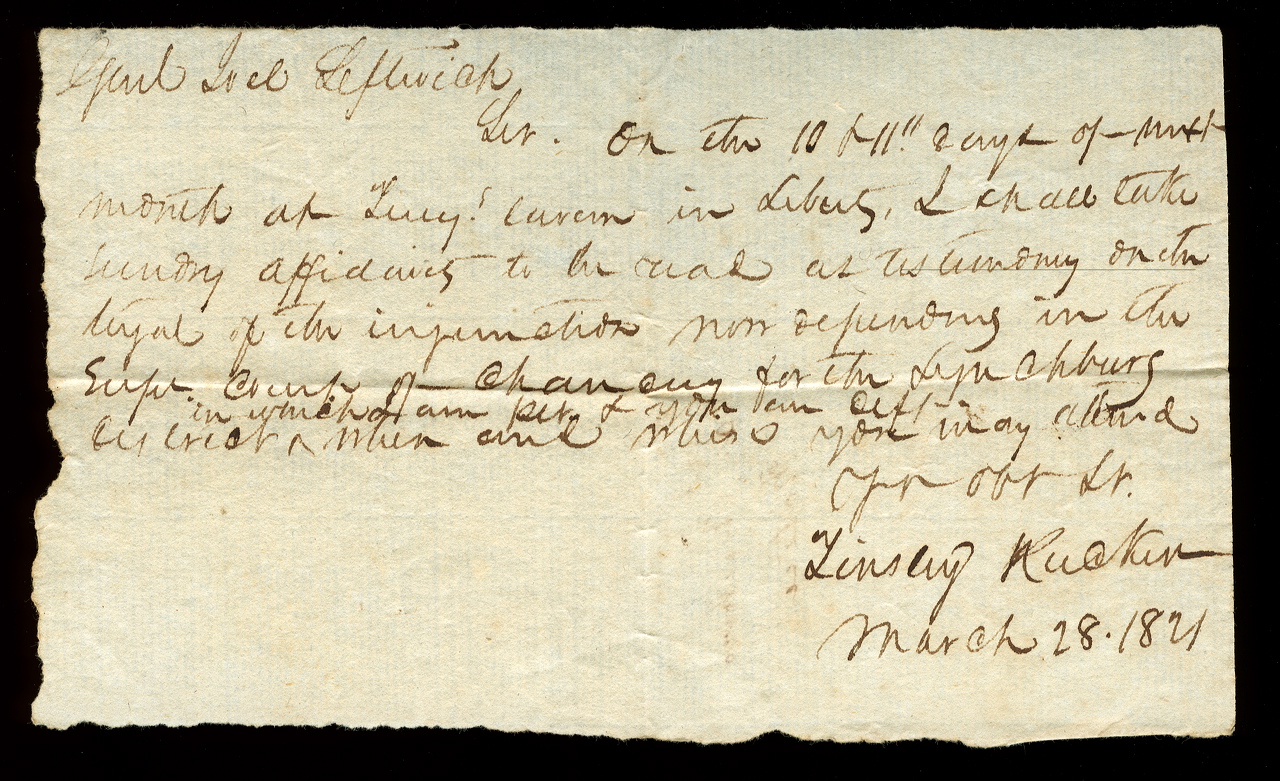 Genl Joel Leftwich
Sir. On the 10 & 11" days of next
month at tavern in Liberty, I shall take
sundry affidavits to be read as testimony on the
tryal of the injunction now depending in the
Supr. Court of Chancery for the Lynchburg
in which I am & you are deft
district ^ when and where you may attend
Yr obt St.
Tinsley Rucker
March 28. 1821